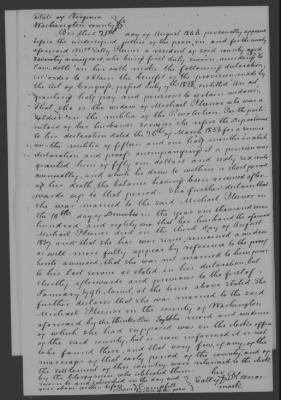 State of Virginia
Washington County
On this 28th day of August 1838 personally appeared
before the undersigned justice of the peace, in and for the county
aforesaid Mrs Sally Fleenor a resident of said county aged
seventy who being first duly sworn according to
Law, doth on her oath make the following declaration,
in order to obtain the benefit of the provision, made by
the Act of Congress, passed July 7th 1838, entitled An act
granting half pay and pensions to certain widows,
That she is the widow of Michael Fleenor who was a
soldier in the militia of the Revolution. For the particulars
of her husbands services she refers the department
to her declaration dated the 26th of March 1838 for a service
in the militia of fifteen and one half months under which
declaration, and proof accompanying it a pension was
granted them of fifty one dollars and sixty six cents
annually, and which he drew to within a short period
of her death, the balance having been received afterwards
up to that period. She further declares that
she was married to the said Michael Fleenor on
the 10th day of in the year one thousand seven
hundred and eighty one, that her husband the aforesaid
Michael Fleenor died on the third day of August
and that she has ever since remained a widow
as will more fully appear by reference to the proof
hereto annexed, that she was not married to him prior
to her last service as stated in her declaration, but
shortly afterwards and previous to the first of
January 1794, to wit, at the time above stated. She
further declares that she was married to the said
Michael Fleenor in the county of Washington
aforesaid by the record and evidence
of which she had supposed was in the clerks office
of the said county, but is now informed it is not
to be found there, and that very few, if any, of the
marriages of that early period of the county, and of
the settlement of this country were returned to the clerk
by the clergymen who celebrated them.
Sworn to and subscribed on the day and
year above written
her
Sally X Fleenor
mark